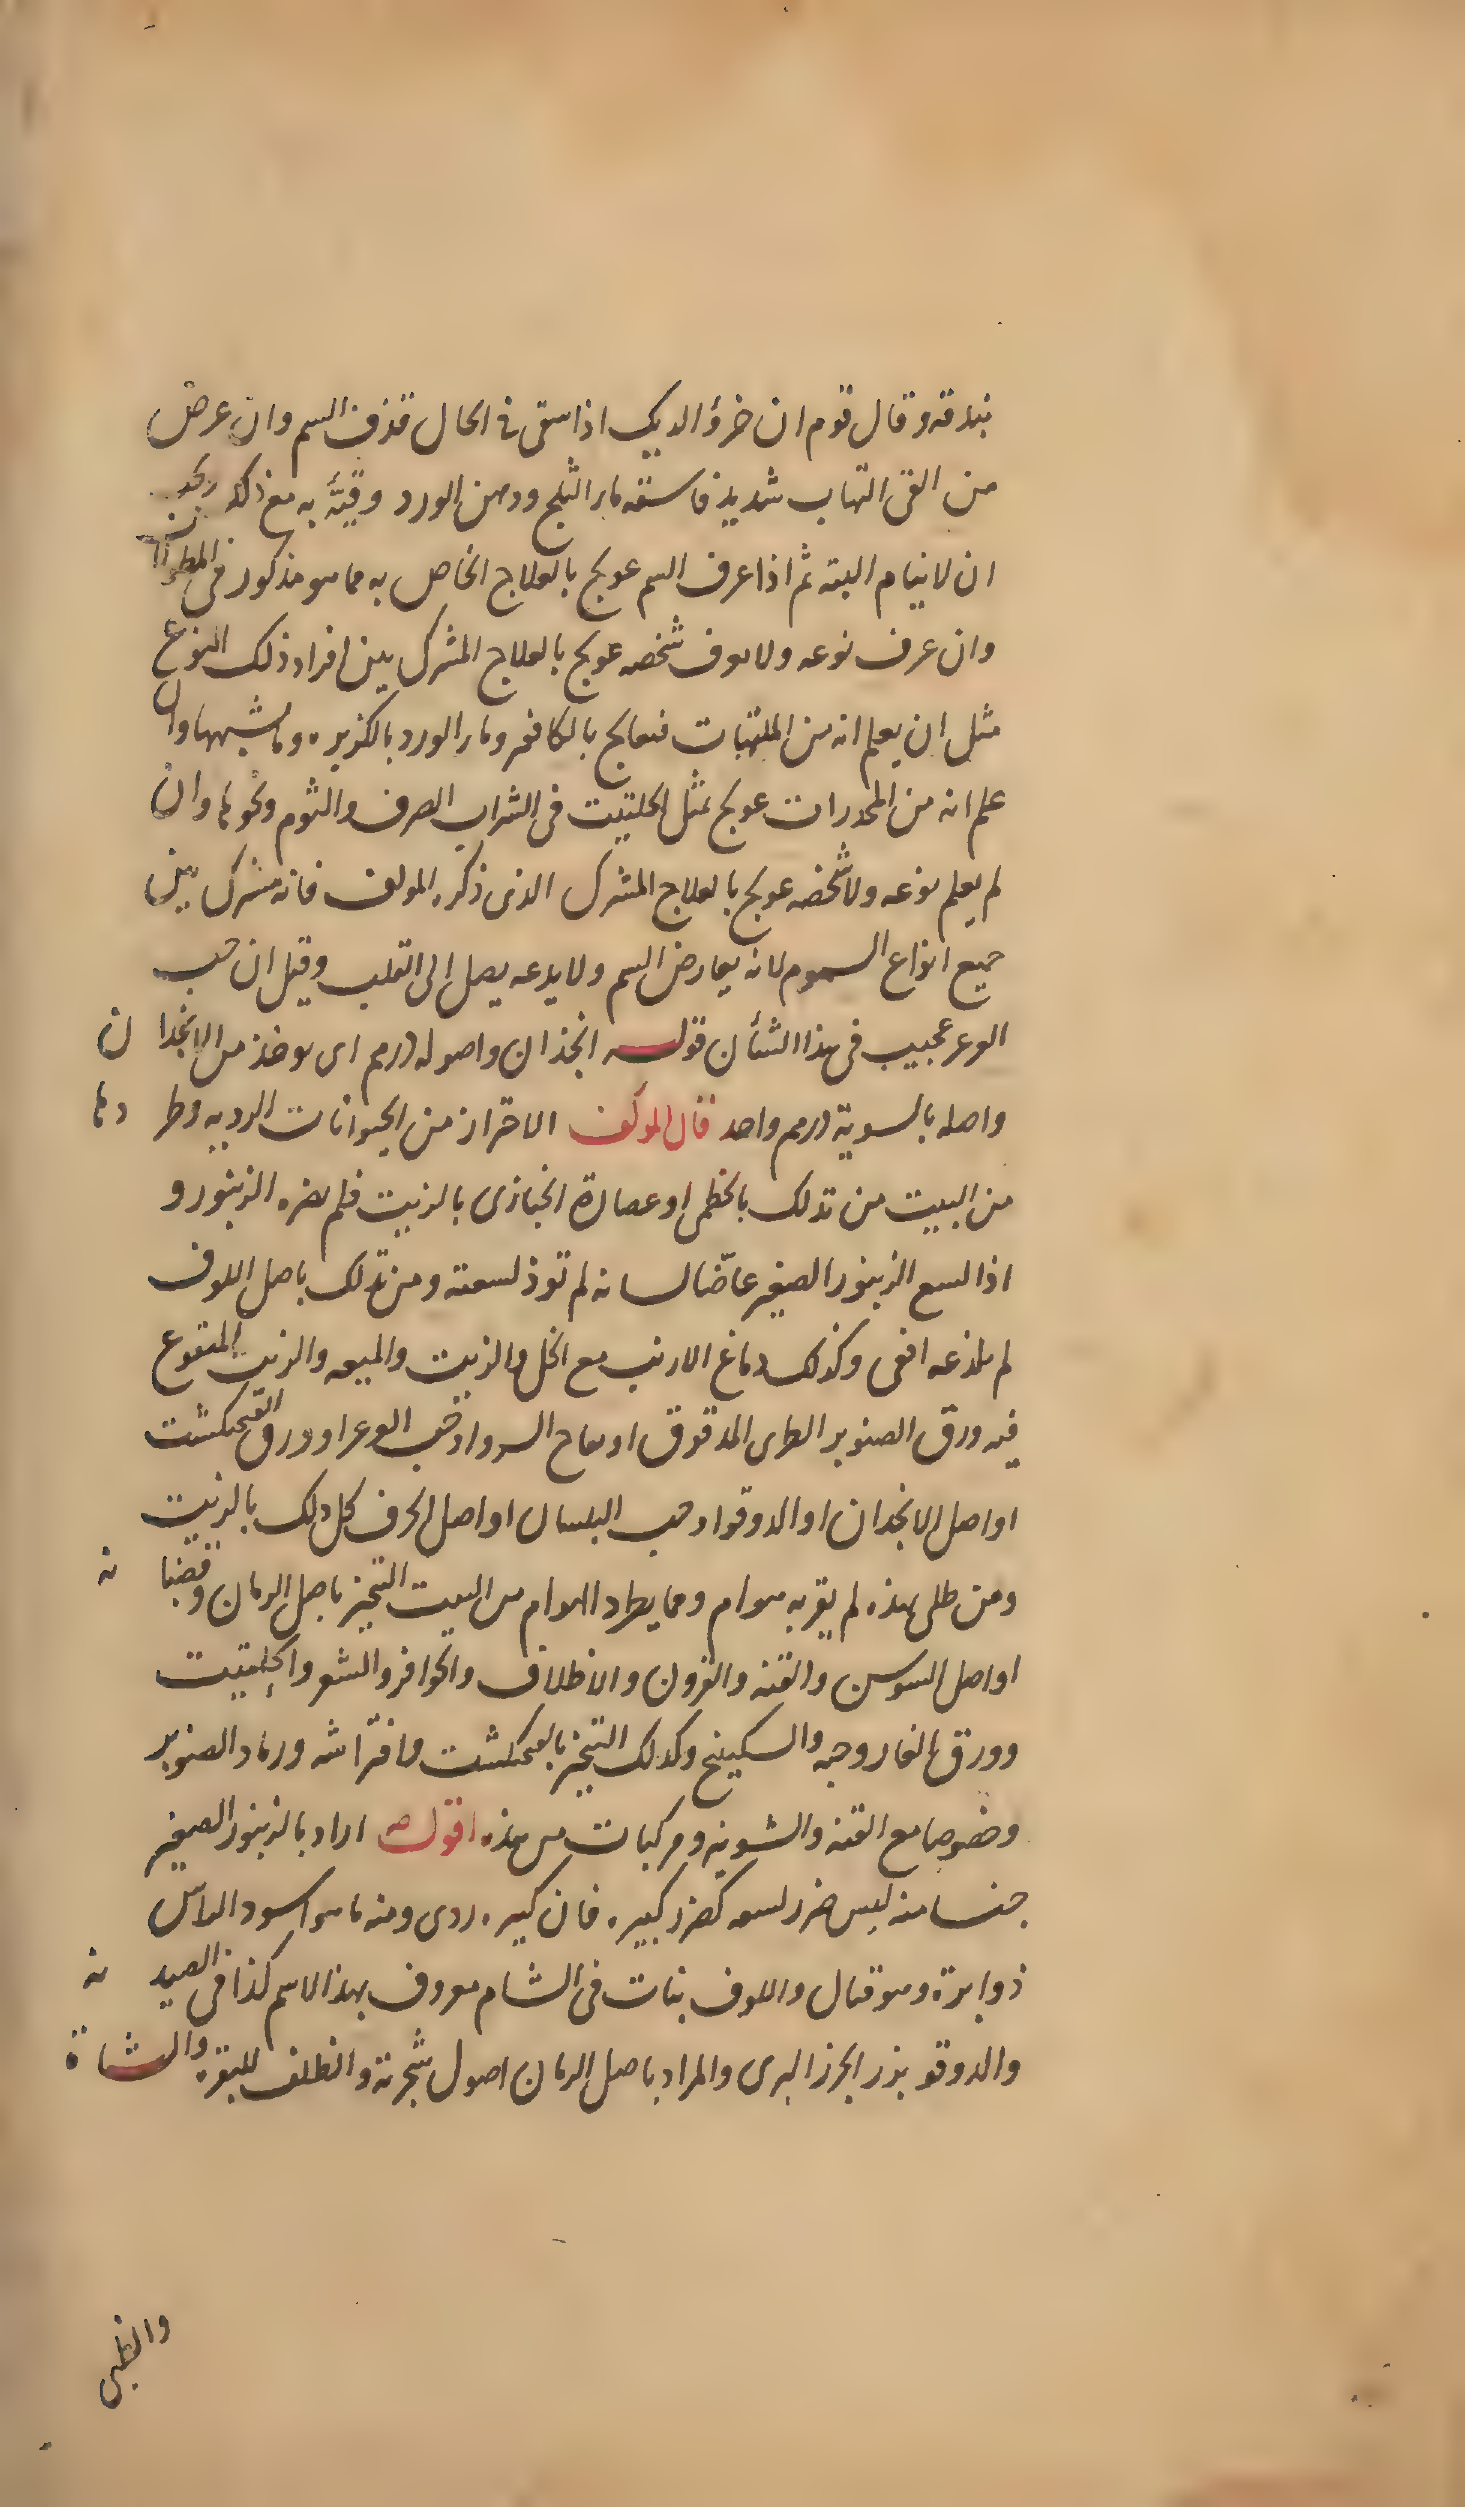 بندقه وقال قوم ان خرؤ الديك اذا سقى فى الحال قذف السم وان عرض
من القى التهاب شديد فاسقه ماء الثلج ودهن الورد وقيّه به مع ذلك ويجب
ان لا ينام البته ثم اذا عرف السم عولج بالعلاج الخاص به مما هو مذكور فى المطولات
وان عرف نوعه ولا يعرف شخصه عولج بالعلاج المشترك بين افراد ذلك النوع
مثل ان يعلم انه من الملتهبات فيعالج بالكافور وماء الورد بالكزبره وما يشبهها وان
علم انه من المخدرات عولج بمثل الحلتيت فى الشراب الصرف والثوم ونحوها وان
لم يعلم نوعه ولا شخصه عولج بالعلاج المشترك الذى ذكره المولف فانه مشترك بين
جميع انواع السموم لانه يعارض السم ولا يدعه يصل الى القلب وقيل ان حب
العرعر عجيب فى هذا الشأن قوله انجذان واصوله درهم اى يوخذ من الانجذان
واصله بالسوية درهم واحد قال المولف الاحتراز من الحيوانات الرديه وطردها
من البيت من تدلك بالخطمى او عصارة الخبازى بالزيت فلم يضره الزنبور و
اذا لسع الزنبور الصغير عاضّا لسانه لم توذ لسعته ومن تدلك باصل اللوف
لم يلدغه افعى وكذلك دماغ الارنب مع الخل والزيت والميعه والزيت المنقوع
فيه ورق الصنوبر الطرى المدقوق او السرو او حب العرعر او ورق الفنجنكشت
او اصل الانجدان او الدوقو او حب البلسان او اصل الحرف كل ذلك بالزيت
ومن طلى بهذه لم يقربه هوام ومما يطرد الهوام من البيت التبخير باصل الرمان وقضبانه
او اصل السوسن والقنه والقرون والاظلاف والحوافر والشعر والحلتيت
وورق الغار وحبه والسكبينج وكذلك التبخير بالفنجنكشت وافتراشه ورماد الصنوبر
وخصوصا مع القنه والشونيه ومركبات من هذه اقول اراد بالزنبور الصغير
جنسا منه ليس ضرر لسعه كضرر كبيره فان كبيره ردى ومنه ما هو اسود الراس
ذو ابرة وهو قتال واللوف نبات فى الشام معروف بهذا الاسم كذا فى الصيدنه
والدوقو بزر الجزر البرى والمراد باصل الرمان اصول شجرته والظلف للبقره والشاة
والظبى